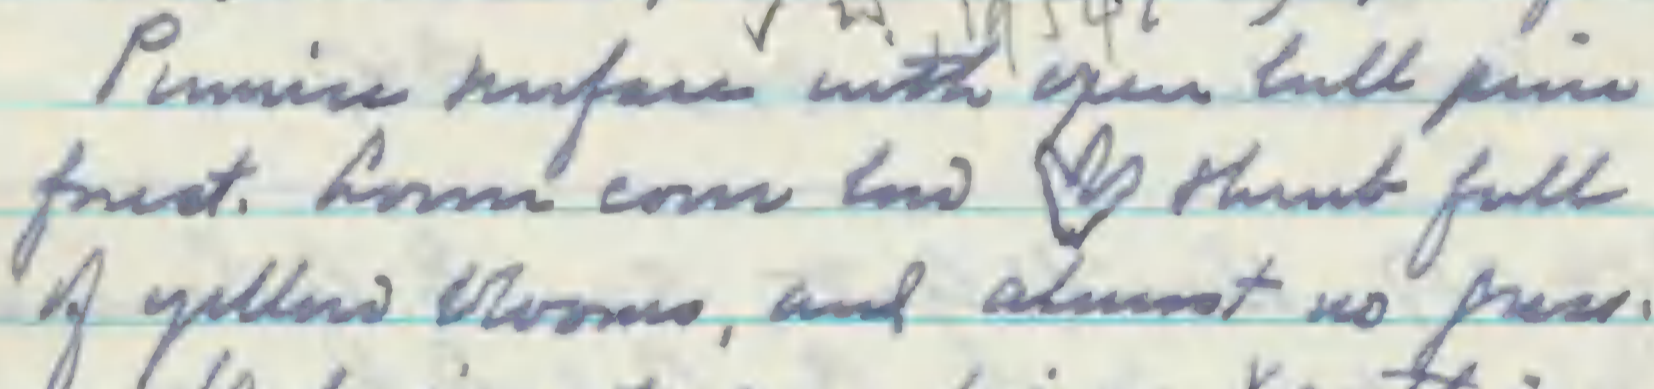 Pumice surface with open bull pine
forest. cover low shrub full
of yellow blooms, and almost no grass.